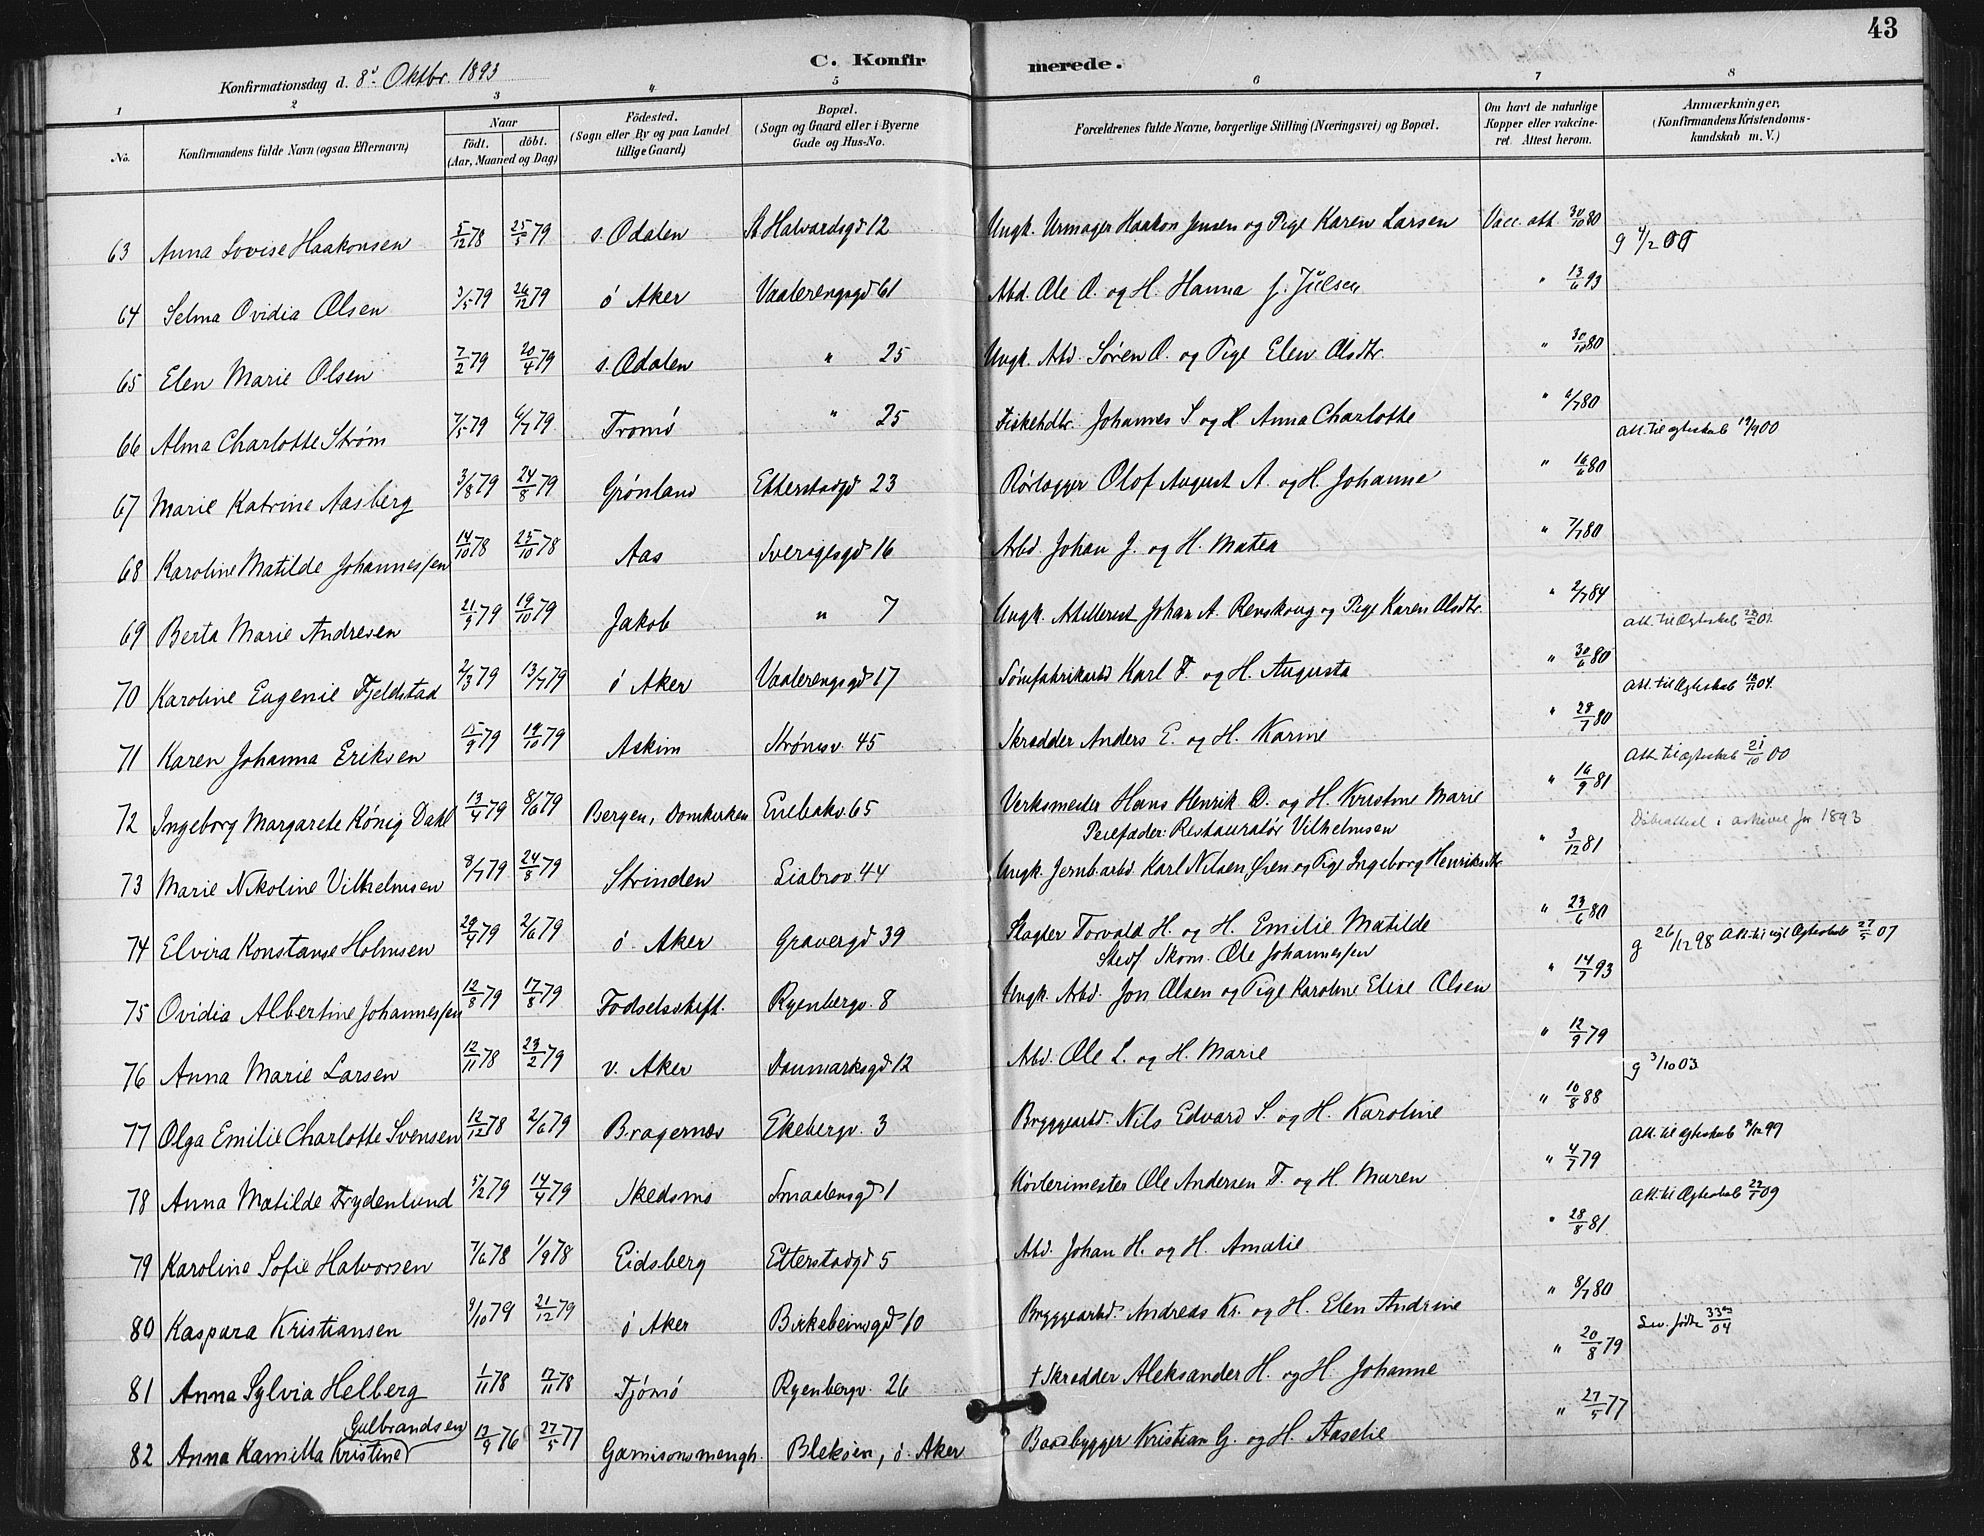 43
C. Konfirmerede.
Konfirmationsdag d. 8d Oktbr. 1893
1 2 3 4 5 6 7 8
No. Konfirmandens fulde Navn (ogsaa Efternavn) Naar født. døbt. (Aar, Maaned og Dag) Födested. (Sogn eller By og paa Landet tillige Gaard) Bopæl. (Sogn og Gaard eller i Byerne Gade og Hus-No. Forældrenes fulde Navne, borgerlige Stilling (Næringsvei) og Bopæl. Om havt de naturlige Kopper eller vakcineret. Attest herom. Anmærkninger, (Konfirmandens Kristendomskundskab m. V.)
63 Anna Lovise Haakonsen 5/12 78 25/5 79 s. Odalen St Halvardsgd 12 Ungk. Urmager Haakon Jensen og Pige Karen Larsen Vacc. att. 30/10 80 g 4/2 00
64 Selma Ovidia Olsen 3/5 79 26/12 79 ö Aker Vaalerengsgd 61 Arbd. Ole O. og H. Hanna f. Julsen " 13/6 93
65 Elen Marie Olsen 7/2 79 20/4 79 s. Odalen " 25 Ungk. Arbd. Søren O. og Pige Elen Olsdtr. " 30/10 80
66 Alma Charlotte Strøm 7/5 79 6/7 79 Tromö " 25 Fiskehdlr. Johannes S og H Anna Charlotte " 6/7 80 Att. til egteskab 19/9 00
67 Marie Katrine Aasberg 3/8 79 24/8 79 Grönland Etterstadgd 23 Rörlægger Olof August A. og H. Johanne " 16/6 80
68 Karoline Matilde Johannessen 14/10 78 25/10 78 Aas Sverigesgd 16 Arbd. Johan J. og H. Matea " 7/7 80
69 Berta Marie Andresen 21/9 79 19/10 79 Jakob " 7 Ungk. Artillerist Johan A. Revskoug og Pige Karen Olsdtr. " 2/7 84 Att. til Ægteskab 01.
70 Karoline Eugenie Fjeldstad 2/3 79 13/7 79 ö Aker Vaalerengsgd 17 Sömfabrikarbd Karl F. og H. Augusta " 30/6 80 Att. til Ægteskab 18/11 04.
71 Karen Johanna Eriksen 79 19/10 79 Askim Strömsv. 45 Skrædder Anders E. og H. Karine " 28/7 80 Att. til Ægteskab 21/10 00
72 Ingeborg Margarete König Dahl 13/4 79 8/6 79 Bergen, Domkirken Enebakv. 65 Verksmester Hans Henrik D. og H. Kristine Marie " 16/9 81 Döbsattest i arkivet for 1893
Pleiefader: Restauratör Vilhelmsen
73 Marie Nikoline Vilhelmsen 8/7 79 24/8 79 Strinden Liabrov. 44 Ungk. Jernb.arbd. Karl Nilsen Öien og Pige Ingeborg Henriksdtr " 3/12 81
74 Elvira Konstanse Holmsen 79 2/6 79 ö. Aker Gravergd 39 Slagter Torvald H. og H. Emilie Matilde " 23/6 80 g 26/12 98 Att. til Ægteskab 07
Stedf Skom. Ole Johannessen
75 Ovidia Albertine Johannessen 12/8 79 17/8 79 Födselsstift. Ryenbergv. 8 Ungk. Arbd. Jon Olsen og Pige Karoline Elise Olsen " 14/7 93
76 Anna Marie Larsen 12/11 78 23/2 79 v. Aker Danmarksgd 12 Abd. Ole L. og H. Marie " 12/9 79 g 3/10 03
77 Olga Emilie Charlotte Svensen 12/12 78 2/6 79 Bragernæs Ekebergv. 3 Bryggearbd. Nils Edvard S. og H. Karoline " 10/8 88 Att. til egteskab 9/12 99
78 Anna Matilde Frydenlund 5/2 79 14/4 79 Skedsmo Smaalensgd 1 Ole Andersen F. og H. Maren " 4/7 79 Att. til Ægteskab 09
79 Karoline Sofie Halvorsen 7/6 78 1/9 78 Eidsberg Etterstadgd 5 Abd. Johan H. og H. Amalie " 28/8 81
80 Kaspara Kristiansen 9/10 79 21/12 79 ö Aker Birkebeinergd 10 Bryggearbd. Andreas Kr. og H. Elen Andrine " 8/7 80
81 Anna Sylvia Helberg 1/11 78 17/11 78 Tjömö Ryenbergv. 26 † Skrædder Aleksander H. og H. Johanne " 20/8 79
82 Anna Kamilla Kristine Gulbrandsen 13/9 76 27/5 77 Garnisonsmengh. Bleköien, ö. Aker Baadbygger Kristian G. og H. Aaselie " 27/5 77